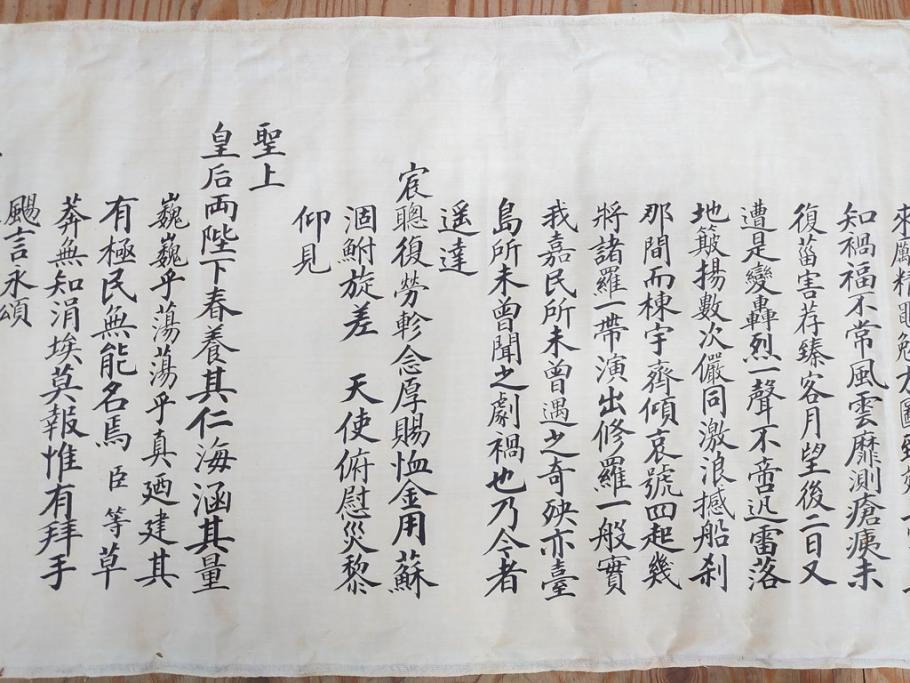 來厲精黽勉力圖
知禍福不常風雲靡測瘡痍未
復菑害荐臻客月望後二日又
遭是變轟烈一聲不啻迅雷落
地簸揚數次儼同激浪撼船剎
那間而棟宇齊傾哀號四起幾
將諸羅一帶演出修羅一般實
我嘉民所未曾遇之奇殃亦臺
島所未曾聞之劇禍也乃今者
遥達
宸聰復勞軫念厚賜恤金用蘇
涸鮒旋差 天使俯慰災黎
仰見
聖上
皇后両陛下春養其仁海涵其量
巍巍乎蕩蕩乎真廼建其
有極民無能名焉 臣 等 草
莽無知涓埃莫報惟有拜手
颺言永頌